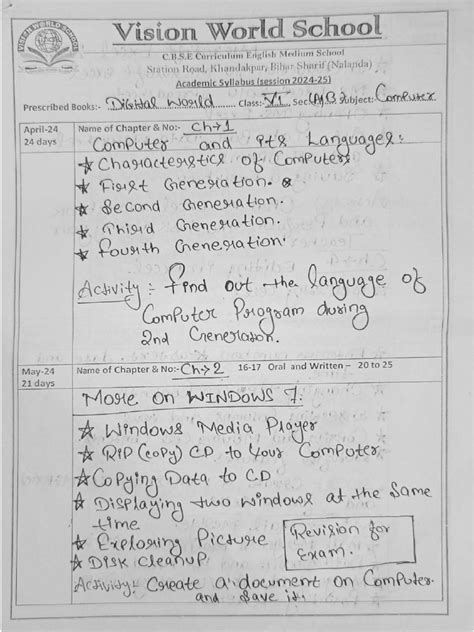 Vision World School
C.B.S.E Curriculum English Medium School
Station Road, Khandakpar, Bihar Sharif (Nalanda)
Academic Syllabus (session 2024-25)
Prescribed Books:- Digital World Class:- VI Sec (A/B) Subject: Computer
April-24 Name of Chapter & No:- Ch→1
24 days
Computer and its Languages:
★ Characteristics of Computers
★ First Generation.
★ Second Generation.
★ Third Generation.
★ Fourth Generation.
Activity: Find out the language of
Computer Program during
2nd Generation.
May-24 Name of Chapter & No:- Ch→2 16-17 Oral and Written – 20 to 25
21 days
More on WINDOWS 7.
★ Windows Media Player
★ RIP (copy) CD to Your Computer
★ Copying Data to CD
★ Displaying two windows at the same
time
★ Exploring Picture
★ Disk cleanup
Revision for
Exam.
Activity:- Create a document on Computer.
and save it.